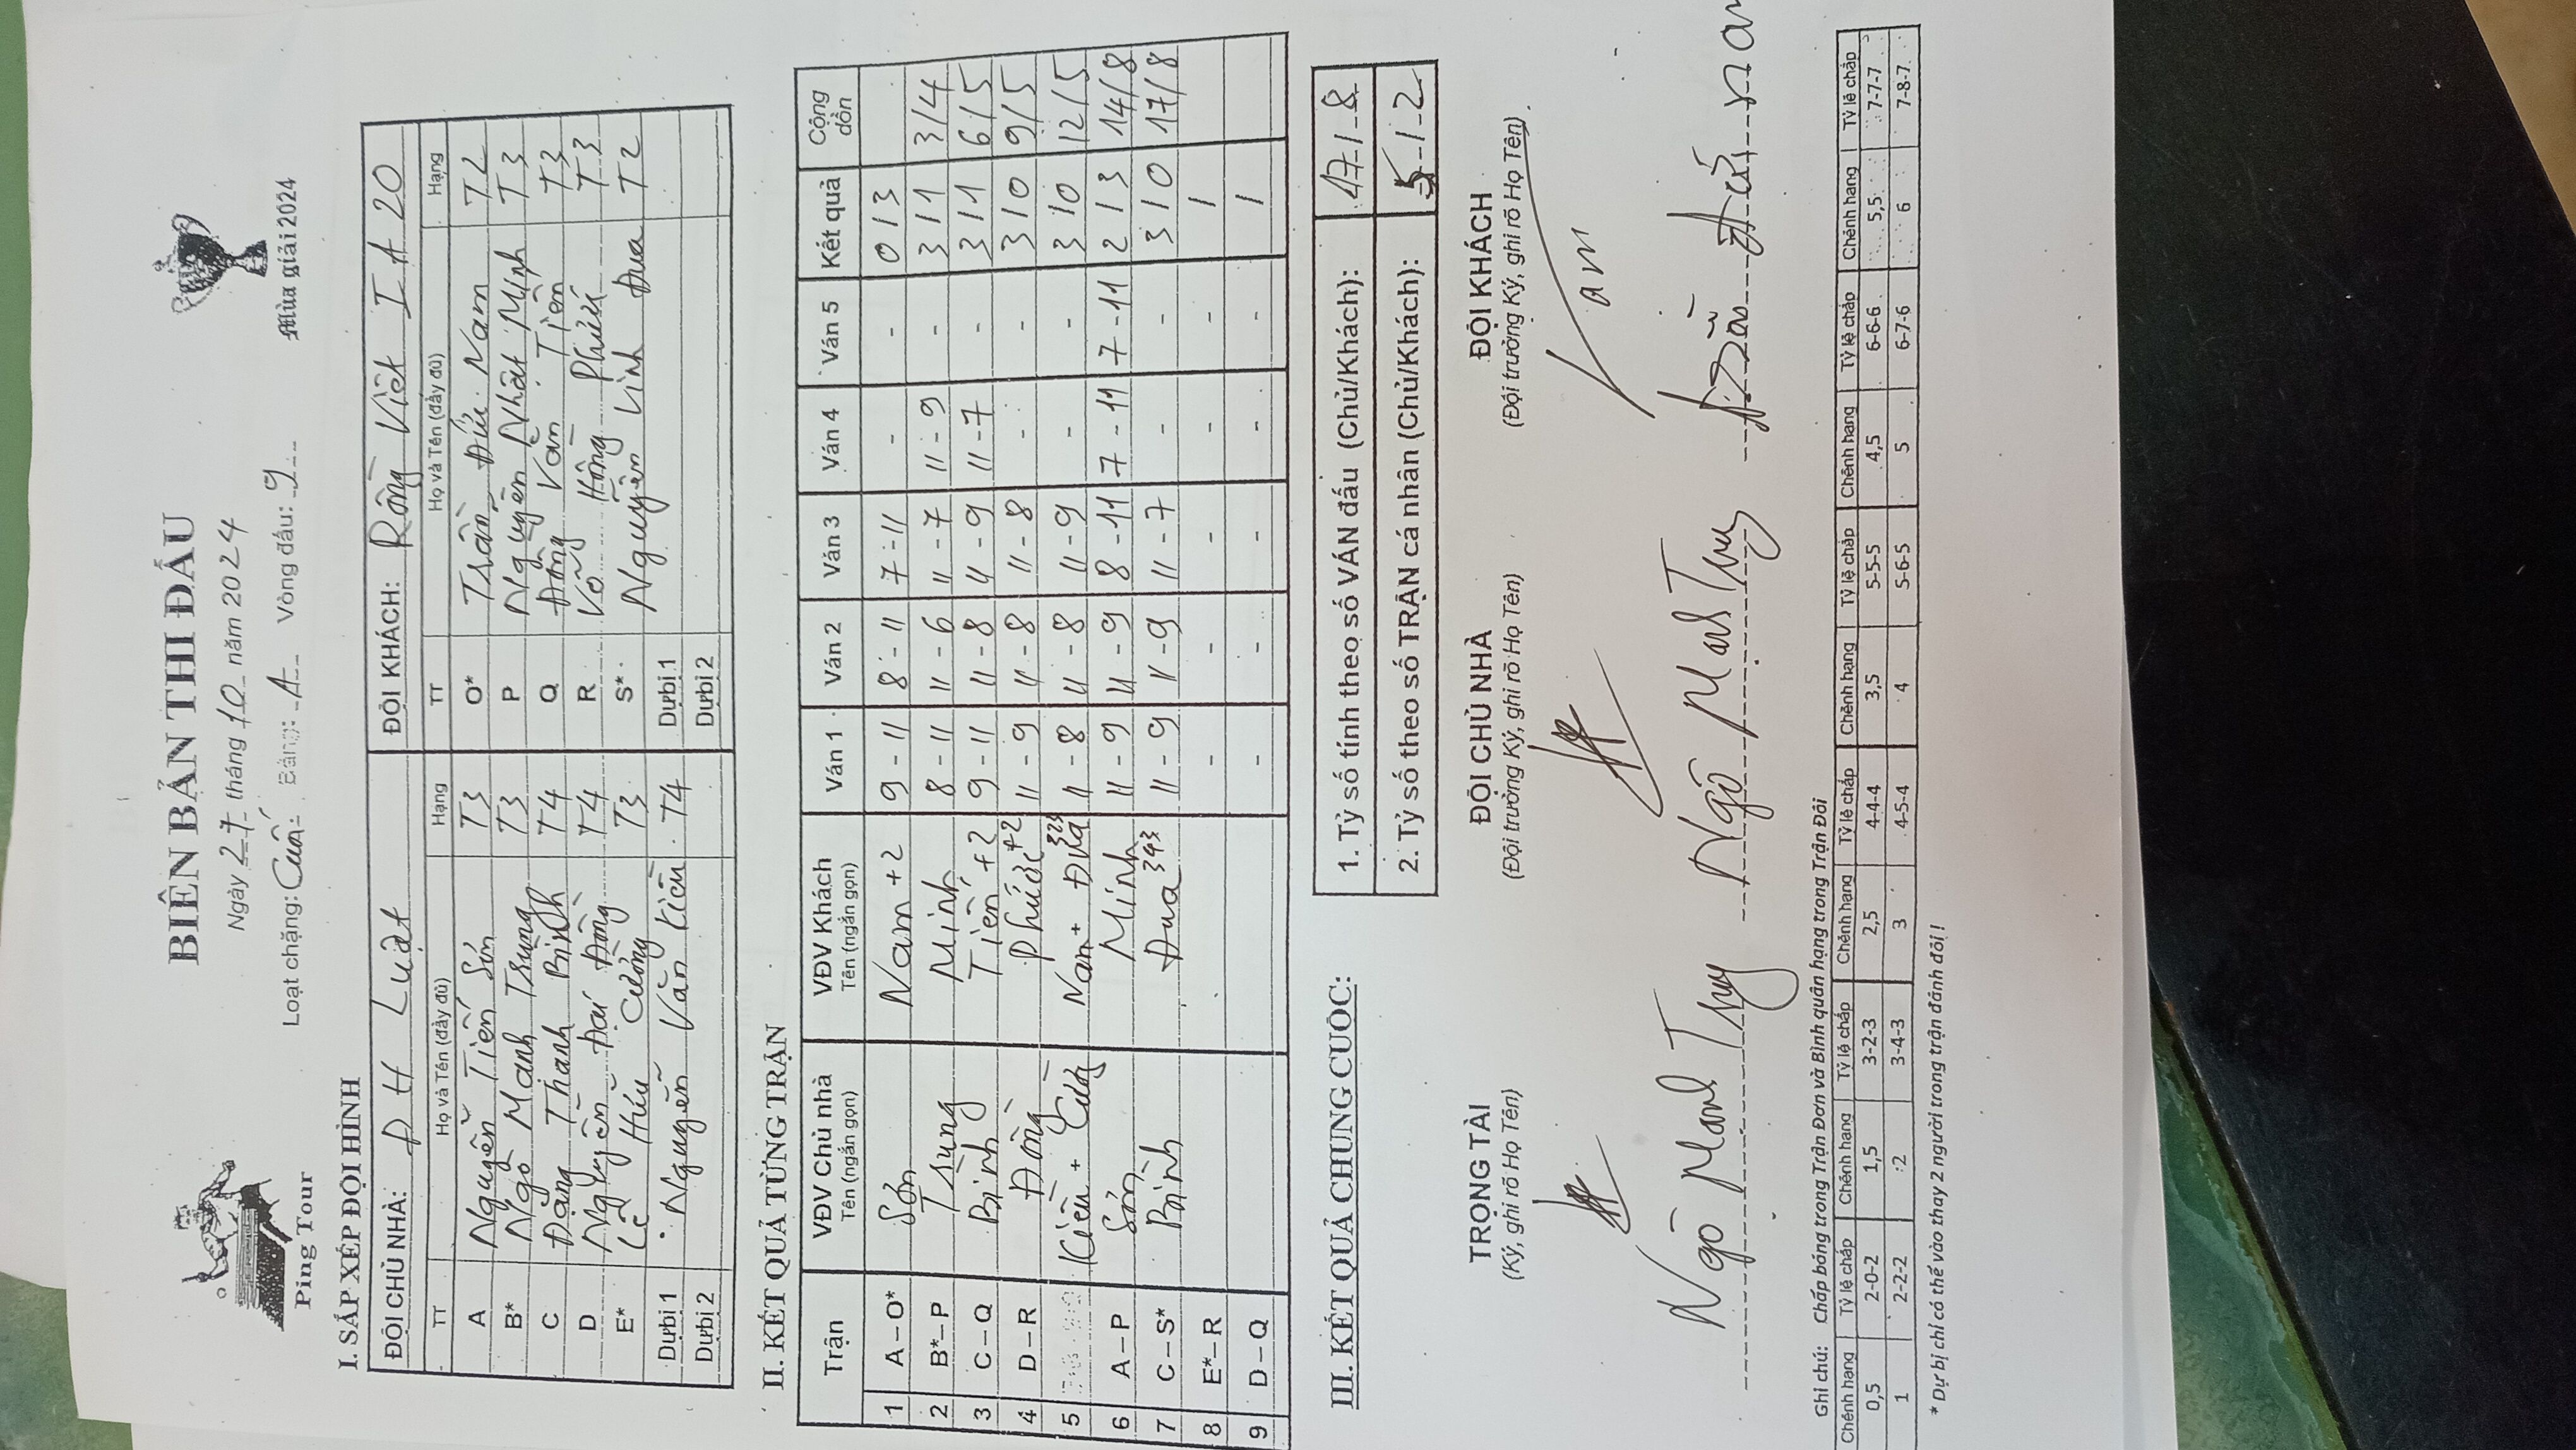 BIÊN BẢN THI ĐẤU
Ngày 27 tháng 10 năm 2024
Ping Tour
Loạt chặng: Cuối Bảng: A Vòng đấu: 9
Mùa giải 2024
I. SẮP XẾP ĐỘI HÌNH
ĐỘI CHỦ NHÀ: ĐH Luật ĐỘI KHÁCH: Rồng Việt IA 20
TT Họ và Tên (đầy đủ) Hạng TT Họ và Tên (đầy đủ) Hạng
A Nguyễn Tiến Sơn T3 O* Trần Đức Nam T2
B* Ngô Mạnh Trung T3 P Nguyễn Nhật Minh T3
C Đặng Thanh Bình T4 Q Đồng Văn Tiến T3
D Nguyễn Đại Đồng T4 R Võ Hồng Phước T3
E* Lê Hữu Cường T3 S* Nguyễn Linh Đua T2
Dự bị 1 Nguyễn Văn Kiều T4 Dự bị 1
Dự bị 2 Dự bị 2
II. KẾT QUẢ TỪNG TRẬN
Trận VĐV Chủ nhà Tên (ngắn gọn) VĐV Khách Tên (ngắn gọn) Ván 1 Ván 2 Ván 3 Ván 4 Ván 5 Kết quả Cộng dồn
1 A – O* Sơn Nam +2 9 - 11 8 - 11 7 - 11 - - 0 / 3
2 B* – P Trung Minh 8 - 11 11 - 6 11 - 7 11 - 9 - 3 / 1 3/4
3 C – Q Bình Tiến +2 9 - 11 11 - 8 11 - 9 11 - 7 - 3 / 1 6/5
4 D – R Đồng Phước +2 11 - 9 11 - 8 11 - 8 - - 3 / 0 9/5
5 Kiều + Cường Nam + Đua 323 11 - 8 11 - 8 11 - 9 - - 3 / 0 12/5
6 A – P Sơn Minh 11 - 9 11 - 9 8 - 11 7 - 11 7 - 11 2 / 3 14/8
7 C – S* Bình Đua 343 11 - 9 11 - 9 11 - 7 - - 3 / 0 17/8
8 E* – R - - - - - /
9 D – Q - - - - - /
III. KẾT QUẢ CHUNG CUỘC:
1. Tỷ số tính theo số VÁN đấu (Chủ/Khách): 17 / 8
2. Tỷ số theo số TRẬN cá nhân (Chủ/Khách): 5 / 2
TRỌNG TÀI ĐỘI CHỦ NHÀ ĐỘI KHÁCH
(Ký, ghi rõ Họ Tên) (Đội trưởng Ký, ghi rõ Họ Tên) (Đội trưởng Ký, ghi rõ Họ Tên)
Nam
Ngô Mạnh Ngô Mạnh Trần Đức Nam
Ghi chú: Chấp bóng trong Trận Đơn và Bình quân hạng trong Trận Đôi
Chênh hạng Tỷ lệ chấp Chênh hạng Tỷ lệ chấp Chênh hạng Tỷ lệ chấp Chênh hạng Tỷ lệ chấp Chênh hạng Tỷ lệ chấp Chênh hạng Tỷ lệ chấp
0,5 2-0-2 1,5 3-2-3 2,5 4-4-4 3,5 5-5-5 4,5 6-6-6 5,5 7-7-7
1 2-2-2 2 3-4-3 3 4-5-4 4 5-6-5 5 6-7-6 6 7-8-7
* Dự bị chỉ có thể vào thay 2 người trong trận đánh đôi !